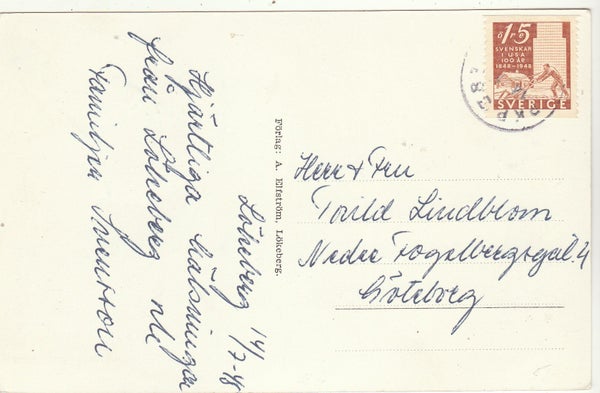 Lökeberg 14/7-48
Hjärtliga hälsningar
från Lökeberg
Familjen Svensson
Förlag: A. Elfström, Lökeberg.
öre 15
SVENSKAR
I USA
100 ÅR
1848-1948
SVERIGE
Herr & Fru
Torild Lindblom
Nedre Fogelbergsgat. 4
Göteborg